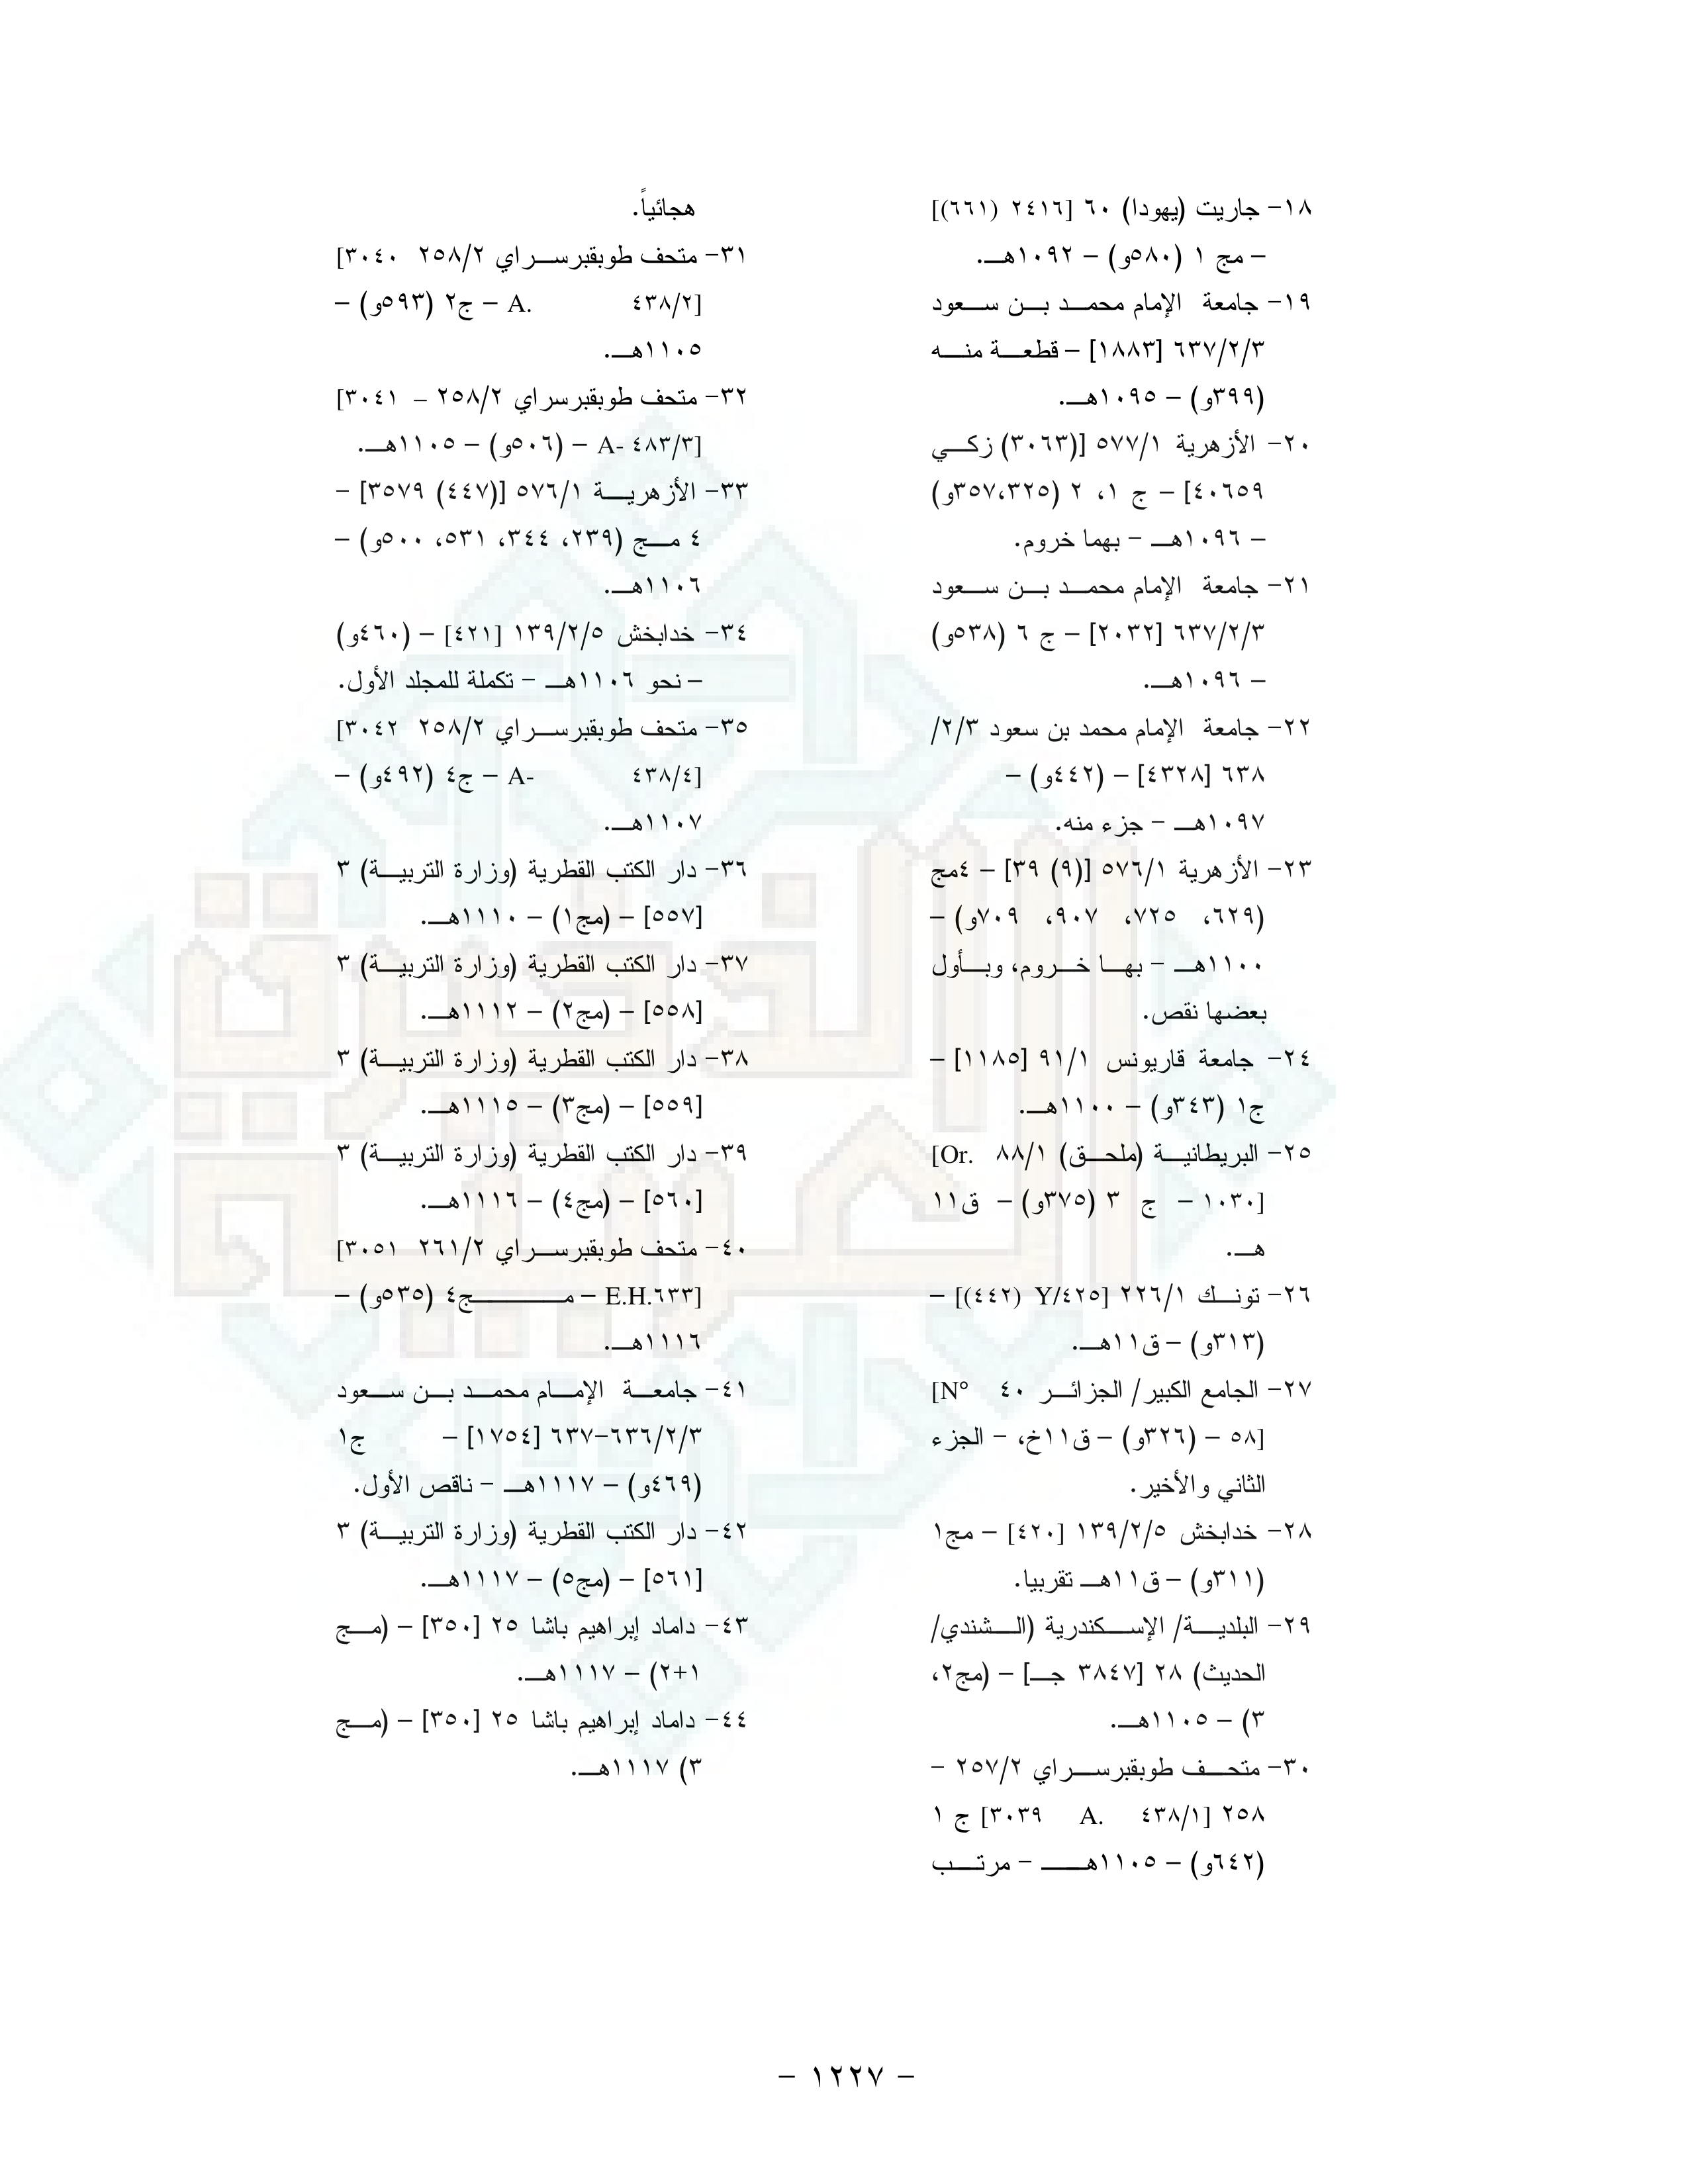 ١٨- جاريت (يهودا) ٦٠ [٢٤١٦ (٦٦١)]
– مج ١ (٥٨٠و) – ١٠٩٢هـ.
١٩- جامعة الإمام محمد بن سعود
٦٣٧/٢/٣ [١٨٨٣] – قطعة منه
(٣٩٩و) – ١٠٩٥هـ.
٢٠- الأزهرية ٥٧٧/١ [(٣٠٦٣) زكي
٤٠٦٥٩] – ج ١، ٢ (٣٥٧،٣٢٥و)
– ١٠٩٦هـ – بهما خروم.
٢١- جامعة الإمام محمد بن سعود
٦٣٧/٢/٣ [٢٠٣٢] – ج ٦ (٥٣٨و)
– ١٠٩٦هـ.
٢٢- جامعة الإمام محمد بن سعود ٢/٣/
٦٣٨ [٤٣٢٨] – (٤٤٢و) –
١٠٩٧هـ – جزء منه.
٢٣- الأزهرية ٥٧٦/١ [(٩) ٣٩] – ٤مج
(٦٢٩، ٧٢٥، ٩٠٧، ٧٠٩و) –
١١٠٠هـ – بها خروم، وبأول
بعضها نقص.
٢٤- جامعة قاريونس ٩١/١ [١١٨٥] –
ج١ (٣٤٣و) – ١١٠٠هـ.
٢٥- البريطانية (ملحق) ٨٨/١ [Or.
١٠٣٠] – ج ٣ (٣٧٥و) – ق١١
هـ.
٢٦- تونك ٢٢٦/١ [Y/٤٢٥ (٤٤٢)] –
(٣١٣و) – ق١١هـ.
٢٧- الجامع الكبير/ الجزائر ٤٠ [N°
٥٨] – (٣٢٦و) – ق١١خ، – الجزء
الثاني والأخير.
٢٨- خدابخش ١٣٩/٢/٥ [٤٢٠] – مج١
(٣١١و) – ق١١هـ تقربيا.
٢٩- البلدية/ الإسكندرية (الشندي/
الحديث) ٢٨ [٣٨٤٧ جـ] – (مج٢،
٣) – ١١٠٥هـ.
٣٠- متحف طوبقبرسراي ٢٥٧/٢ –
٢٥٨ [٤٣٨/١ A. ٣٠٣٩] ج ١
(٦٤٢و) – ١١٠٥هـ – مرتب
هجائياً.
٣١- متحف طوبقبرسراي ٢٥٨/٢ [٣٠٤٠
A. ٤٣٨/٢] – ج٢ (٥٩٣و) –
١١٠٥هـ.
٣٢- متحف طوبقبرسراي ٢٥٨/٢ – [٣٠٤١
A- ٤٨٣/٣] – (٥٠٦و) – ١١٠٥هـ.
٣٣- الأزهرية ٥٧٦/١ [(٤٤٧) ٣٥٧٩] –
٤ مج (٢٣٩، ٣٤٤، ٥٣١، ٥٠٠و) –
١١٠٦هـ.
٣٤- خدابخش ١٣٩/٢/٥ [٤٢١] – (٤٦٠و)
– نحو ١١٠٦هـ – تكملة للمجلد الأول.
٣٥- متحف طوبقبرسراي ٢٥٨/٢ [٣٠٤٢
A- ٤٣٨/٤] – ج٤ (٤٩٢و) –
١١٠٧هـ.
٣٦- دار الكتب القطرية (وزارة التربية) ٣
[٥٥٧] – (مج١) – ١١١٠هـ.
٣٧- دار الكتب القطرية (وزارة التربية) ٣
[٥٥٨] – (مج٢) – ١١١٢هـ.
٣٨- دار الكتب القطرية (وزارة التربية) ٣
[٥٥٩] – (مج٣) – ١١١٥هـ.
٣٩- دار الكتب القطرية (وزارة التربية) ٣
[٥٦٠] – (مج٤) – ١١١٦هـ.
٤٠- متحف طوبقبرسراي ٢٦١/٢ [٣٠٥١
E.H.٦٣٣] – مج٤ (٥٣٥و) –
١١١٦هـ.
٤١- جامعة الإمام محمد بن سعود
٦٣٦/٢/٣-٦٣٧ [١٧٥٤] – ج١
(٤٦٩و) – ١١١٧هـ – ناقص الأول.
٤٢- دار الكتب القطرية (وزارة التربية) ٣
[٥٦١] – (مج٥) – ١١١٧هـ.
٤٣- داماد إبراهيم باشا ٢٥ [٣٥٠] – (مج
١+٢) – ١١١٧هـ.
٤٤- داماد إبراهيم باشا ٢٥ [٣٥٠] – (مج
٣) ١١١٧هـ.
الذخيرة
العربية
– ١٢٢٧ –